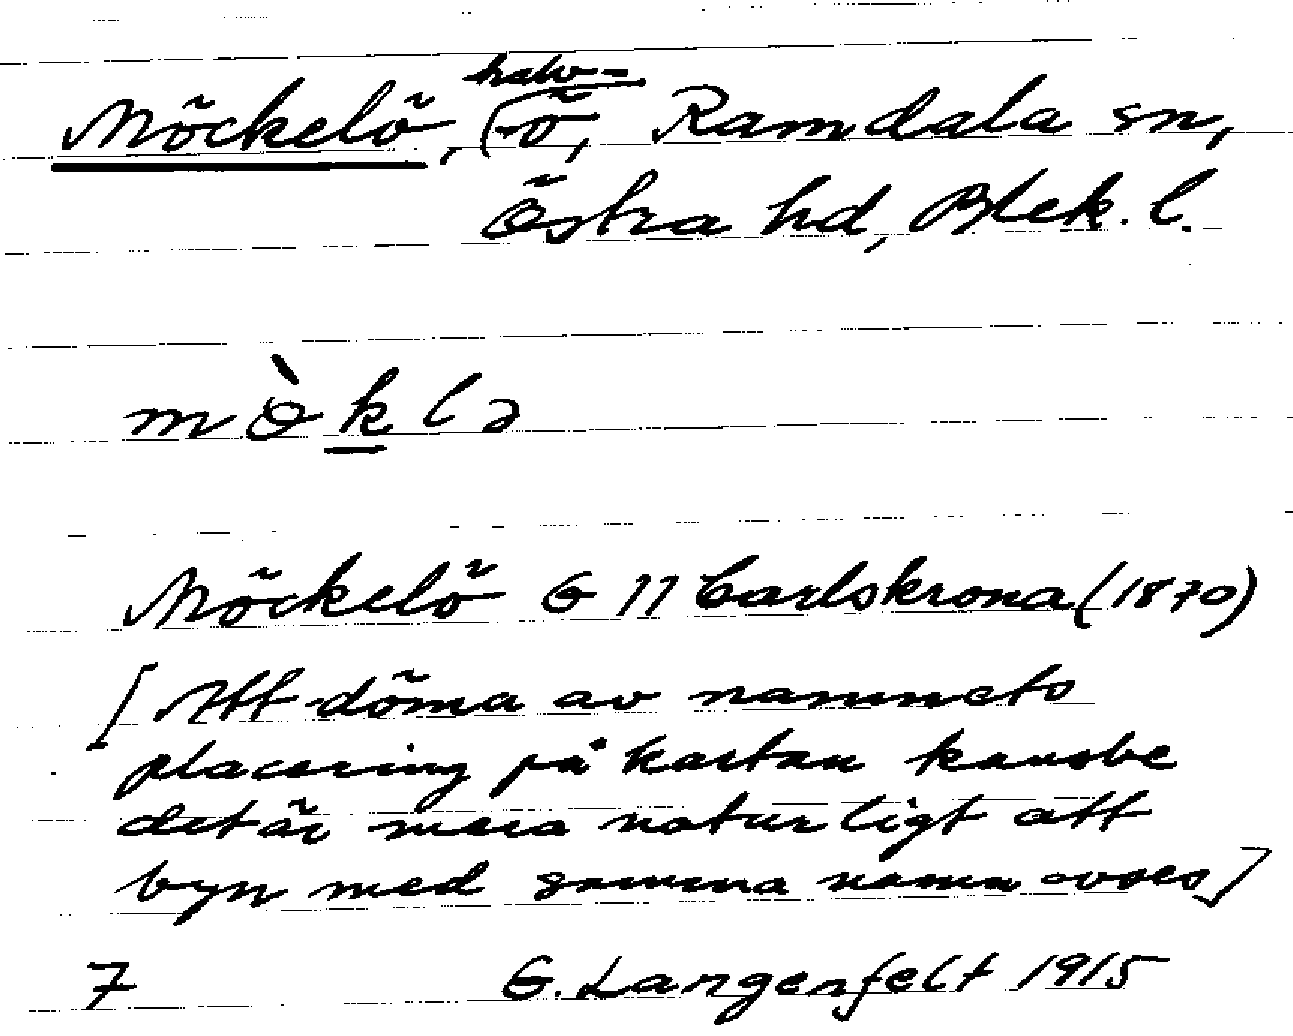 halv-
Möckelö, (-ö, Ramdala sn,
Östra hd, Blek. l.
mö̀klə
Möckelö G 11 Carlskrona (1870)
[Att döma av namnets
placering på kartan kanske
det är mera naturligt att
byn med samma namn avses]
7 G. Langenfelt 1915